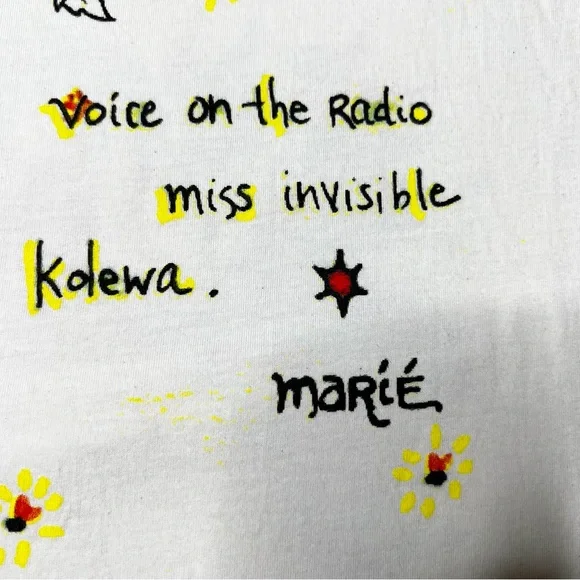 Voice on the Radio
miss invisible
Kolewa.
MARÍÉ